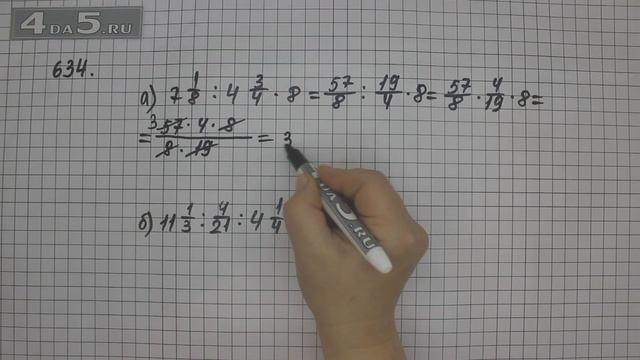 4DA5.RU
634.
а) 7 1/8 : 4 3/4 · 8 = 57/8 : 19/4 · 8 = 57/8 · 4/19 · 8 =
= 3 57 · 4 · 8 / 8 · 19 = 3
б) 11 1/3 : 4/21 : 4 1/4